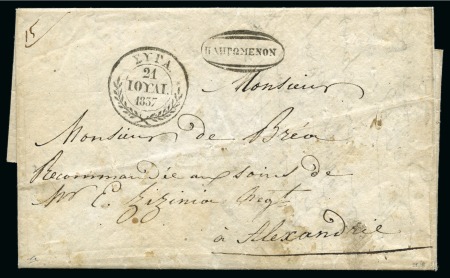 15
ΣΥΡΑ
21
ΙΟΥΛ.
1837
ΠΛΗΡΩΜΕΝΟΝ
Monsieur
Monsieur de Bréa
Recommandée aux soins de
Mr E. Zizinia Negt
à Alexandrie